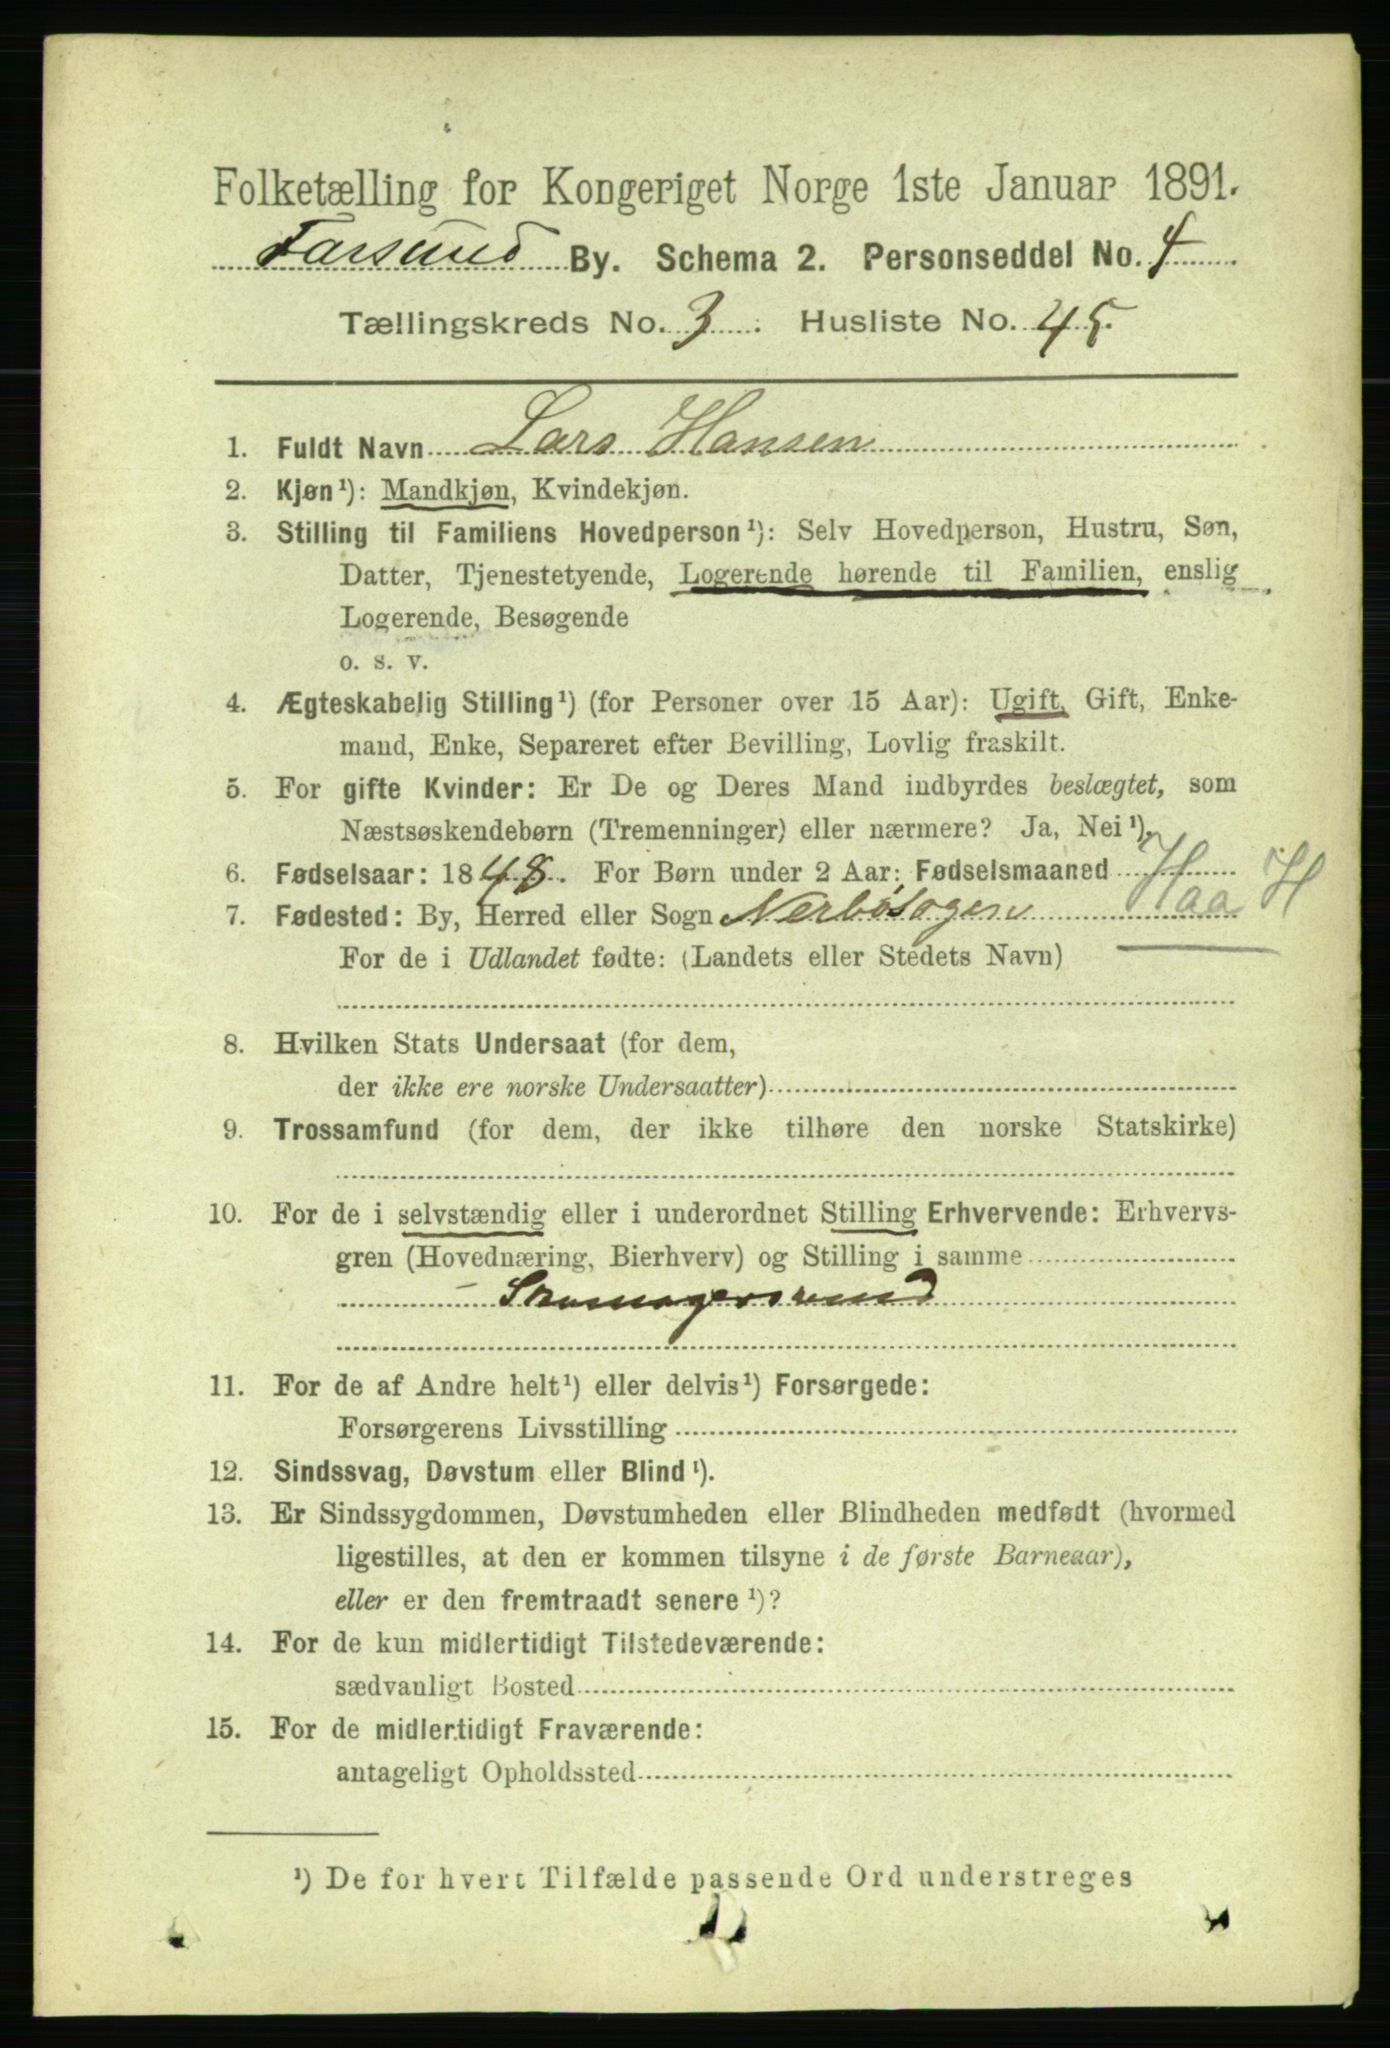 Folketælling for Kongeriget Norge 1ste Januar 1891.
Farsund By. Schema 2. Personseddel No. 4
Tællingskreds No. 3. Husliste No. 45.
1. Fuldt Navn Lars Hansen
2. Kjøn¹): Mandkjøn, Kvindekjøn.
3. Stilling til Familiens Hovedperson¹): Selv Hovedperson, Hustru, Søn,
Datter, Tjenestetyende, Logerende hørende til Familien, enslig
Logerende, Besøgende
o. s. v.
4. Ægteskabelig Stilling¹) (for Personer over 15 Aar): Ugift, Gift, Enke-
mand, Enke, Separeret efter Bevilling, Lovlig fraskilt.
5. For gifte Kvinder: Er De og Deres Mand indbyrdes beslægtet, som
Næstsøskendebørn (Tremenninger) eller nærmere? Ja, Nei¹).
6. Fødselsaar: 1848. For Børn under 2 Aar: Fødselsmaaned
7. Fødested: By, Herred eller Sogn Nerbøsogen Haa H
For de i Udlandet fødte: (Landets eller Stedets Navn)
8. Hvilken Stats Undersaat (for dem,
der ikke ere norske Undersaatter)
9. Trossamfund (for dem, der ikke tilhøre den norske Statskirke)
10. For de i selvstændig eller i underordnet Stilling Erhvervende: Erhvervs-
gren (Hovednæring, Bierhverv) og Stilling i samme
- Skomagersvend
11. For de af Andre helt¹) eller delvis¹) Forsørgede:
Forsørgerens Livsstilling
12. Sindssvag, Døvstum eller Blind¹).
13. Er Sindssygdommen, Døvstumheden eller Blindheden medfødt (hvormed
ligestilles, at den er kommen tilsyne i de første Barneaar),
eller er den fremtraadt senere¹)?
14. For de kun midlertidigt Tilstedeværende:
sædvanligt Bosted
15. For de midlertidigt Fraværende:
antageligt Opholdssted
¹) De for hvert Tilfælde passende Ord understreges